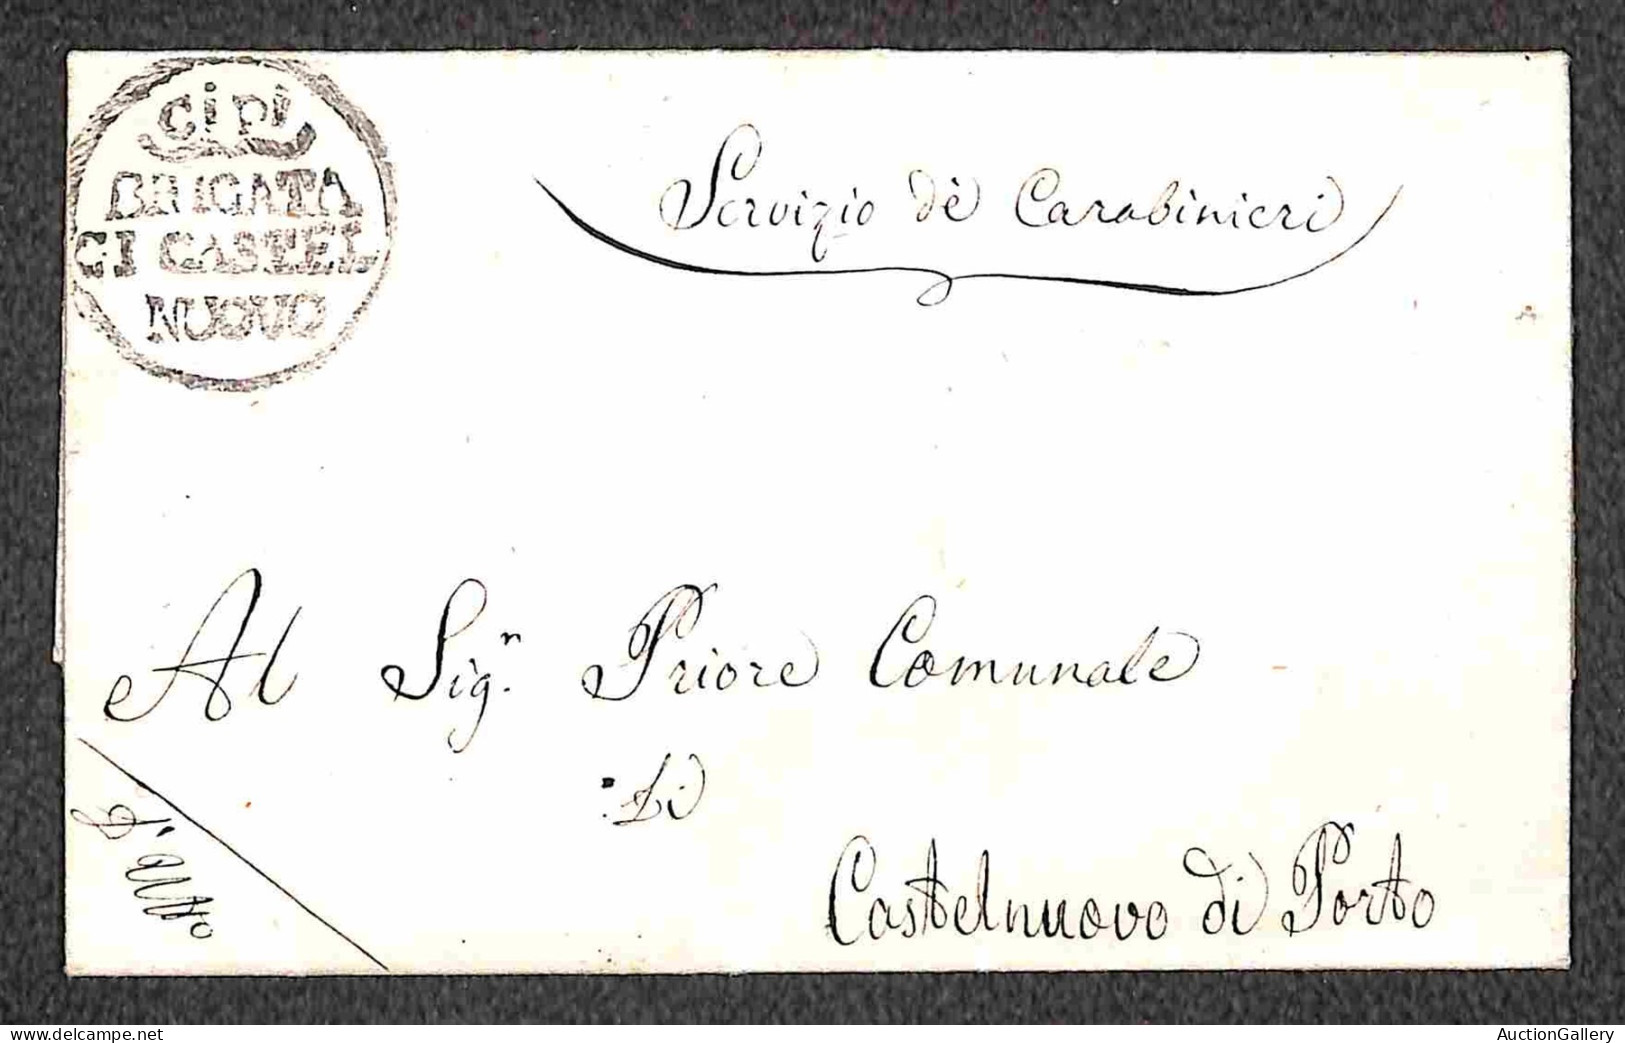 cipi
BRIGATA
CI CASTEL
NUOVO
Servizio dè Carabinieri
Al Sig.n Priore Comunale
Di
Castelnuovo di Porto
www.delcampe.net
AuctionGallery